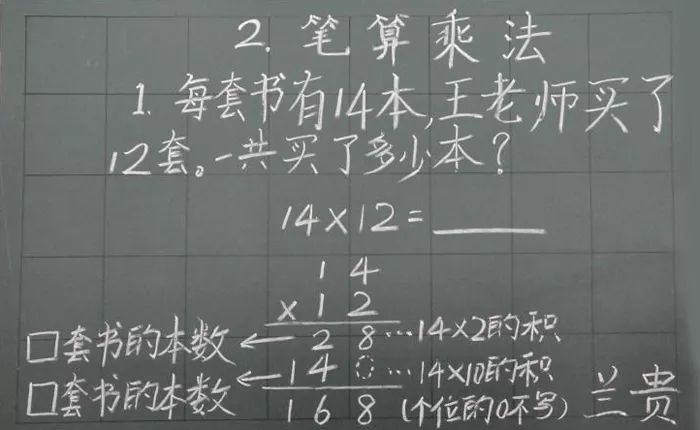 2. 笔算乘法
1. 每套书有14本,王老师买了
12套。一共买了多少本?
14×12=____
1 4
×1 2
□套书的本数←2 8…14×2的积
□套书的本数←1 4 0…14×10的积
1 6 8 (个位的0不写) 兰贵